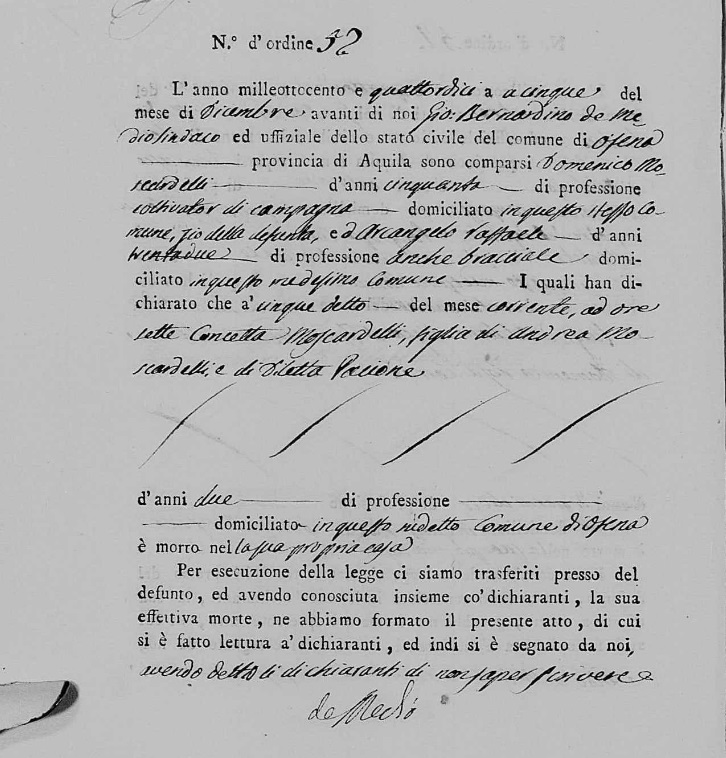 N.° d'ordine 52
L'anno milleottocento e quattordici a cinque del
mese di Dicembre avanti di noi Gio: Bernardino de Me-
dio sindaco ed uffiziale dello stato civile del comune di Ofena
provincia di Aquila sono comparsi Domenico Mo-
scardelli d'anni cinquanta di professione
coltivator di campagna domiciliato in questo stesso Co-
mune, zio della defunta, e d Arcangelo raffaele d'anni
trentadue di professione anche bracciale domi-
ciliato in questo medesimo Comune I quali han di-
chiarato che a' cinque detto del mese corrente, ad ore
sette Concetta Moscardelli, figlia di Andrea Mo-
scardelli, e di Diletta Pacione
d'anni due di professione
domiciliato in questo ridetto Comune di Ofena
è morro nel la sua propria casa
Per esecuzione della legge ci siamo trasferiti presso del
defunto, ed avendo conosciuta insieme co'dichiaranti, la sua
effettiva morte, ne abbiamo formato il presente atto, di cui
si è fatto lettura a'dichiaranti, ed indi si è segnato da noi,
avendo detto li dichiaranti di non saper scrivere
de Medio